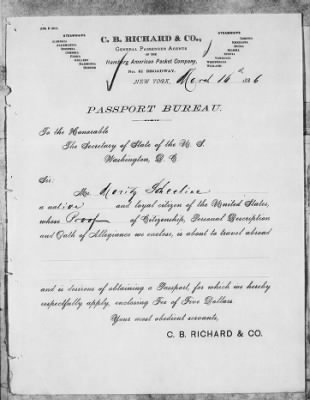 C. B. RICHARD & CO.,
GENERAL PASSENGER AGENTS
OF THE
Hamburg American Packet Company,
No. 61 BROADWAY.
NEW YORK, March 16th 1886
PASSPORT BUREAU.
To the Honorable
The Secretary of State of the U. S.
Washington, D. C.
Sir:
Mr. Moritz
a native and loyal citizen of the United States,
whose Proof of Citizenship, Personal Description
and Oath of Allegiance we enclose, is about to travel abroad
and is desirous of obtaining a Passport, for which we hereby
respectfully apply, enclosing Fee of Five Dollars.
Your most obedient servants,
C. B. RICHARD & CO.